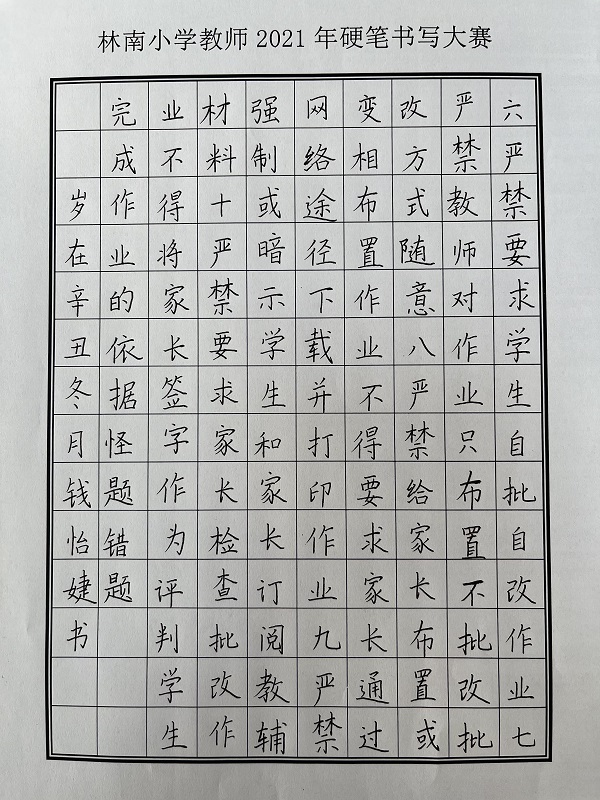 林南小学教师2021年硬笔书写大赛
六严禁要求学生自批自改作业七
严禁教师对作业只布置不批改批
改方式随意八严禁给家长布置或
变相布置作业不得要求家长通过
网络途径下载并打印作业九严禁
强制或暗示学生和家长订阅教辅
材料十严禁要求家长检查批改作
业不得将家长签字作为评判学生
完成作业的依据怪题错题
岁在辛丑冬月钱怡婕书